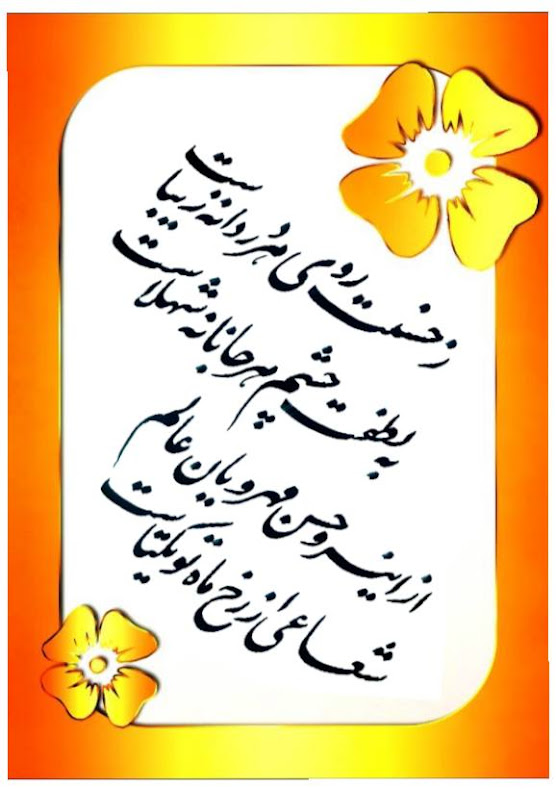 ز حسنت روی هر دُردانه زیباست
به لطفت چشم هر جانانه شهلاست
از اینرو حسن مهرویان عالم
شعاعی از رخ ماه تو یکتاست